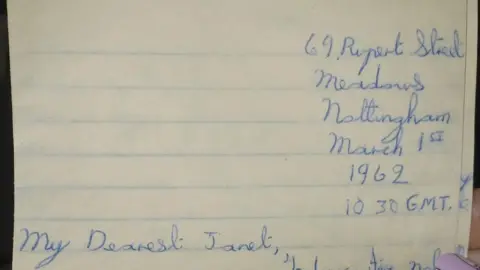 69, Rupert Street
Meadows
Nottingham
March 1st
1962
10 30 GMT.
My Dearest Janet,